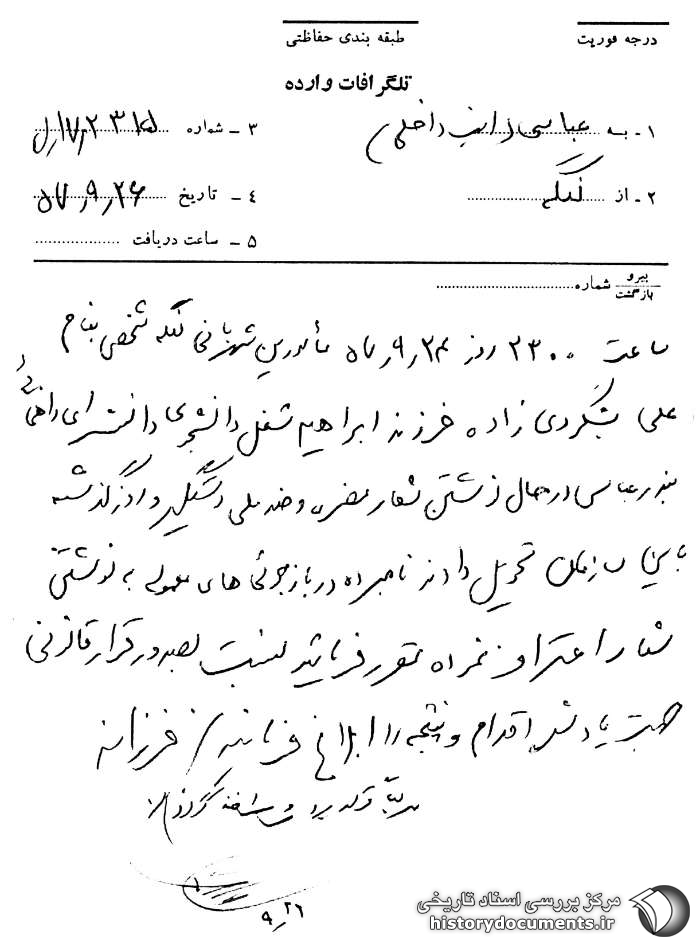 درجه فوریت
طبقه بندی حفاظتی
تلگرافات وارده
۱ - به عباسی (از بندر داخلی)
۳ - شماره
۲ - از لنگه
۴ - تاریخ ۵۷٫۹٫۲۶
۵ - ساعت دریافت
پیرو
بازگشت
شماره
ساعت ۲۳۰۰ روز ۵۷٫۹٫۲۴ مأمورین شهربانی لنگه شخصی بنام
علی بشکردی زاده فرزند ابراهیم شغل دانشجوی دانشسرای راهنمائی
بندرعباس در حال نوشتن شعار مضره و ضد ملی دستگیر و روز گذشته
باین سازمان تحویل دادند نامبرده در بازجوئی های معموله به نوشتن
شعار اعتراف نموده مقرر فرمائید نسبت بصدور قرار قانونی
جهت یاد شده اقدام و نتیجه را ابلاغ فرمایند / فرزانه
۹٫۲۶
مرکز بررسی اسناد تاریخی
historydocuments.ir